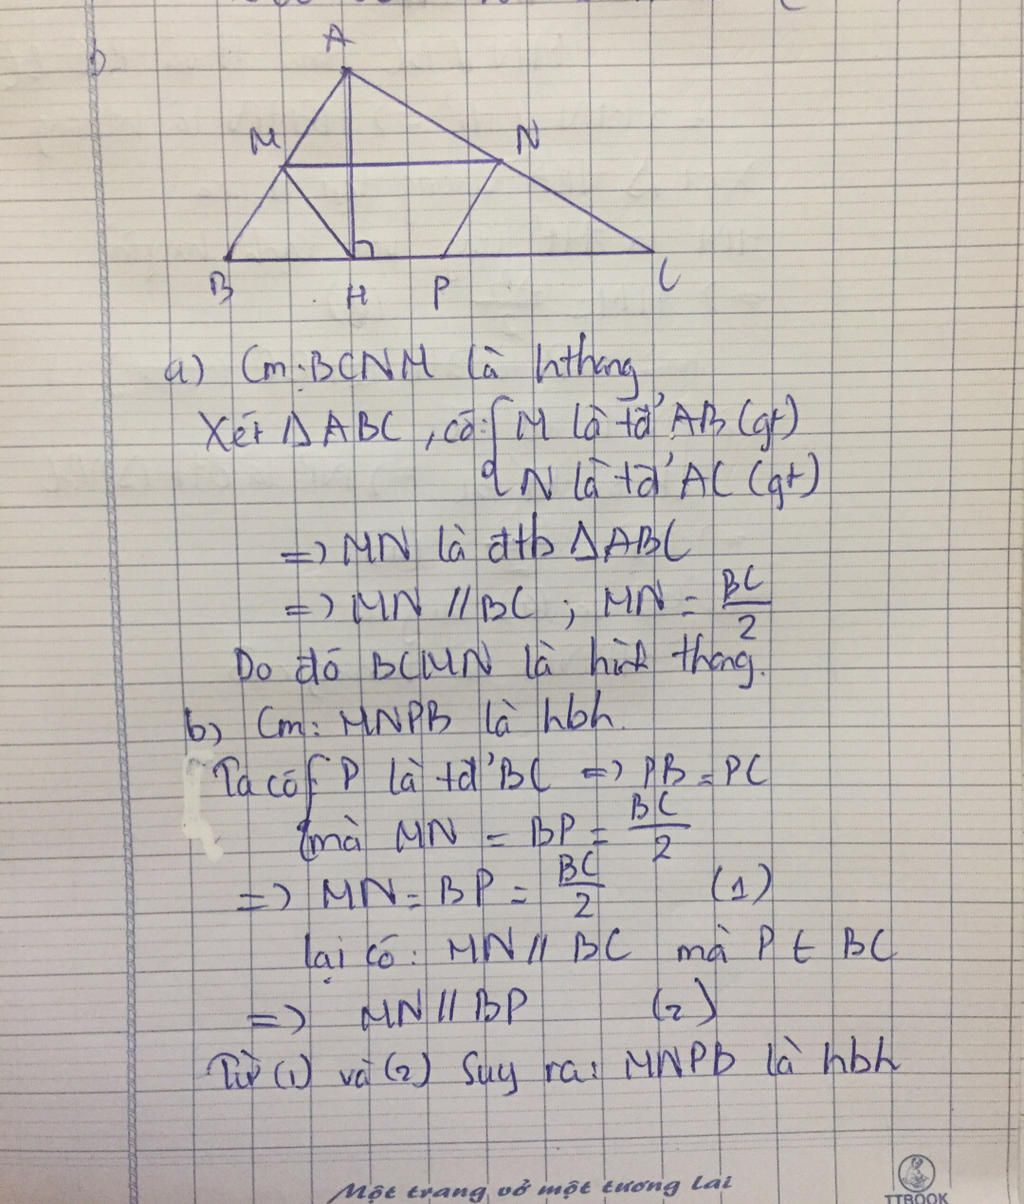 A
M
N
B
H
P
C
a) Cm: BCNM là hthang
Xét ΔABC, có: { M là tđ' AB (gt)
N là tđ' AC (gt)
=> MN là đtb ΔABC
=> MN // BC ; MN = BC/2
Do đó BCMN là hình thang.
b) Cm: MNPB là hbh.
Ta có { P là tđ' BC => PB = PC
mà MN = BP = BC/2
=> MN = BP = BC/2 (1)
lại có: MN // BC mà P ∈ BC
=> MN // BP (2)
Từ (1) và (2) Suy ra: MNPB là hbh
Một trang vở một tương lai
TTBOOK